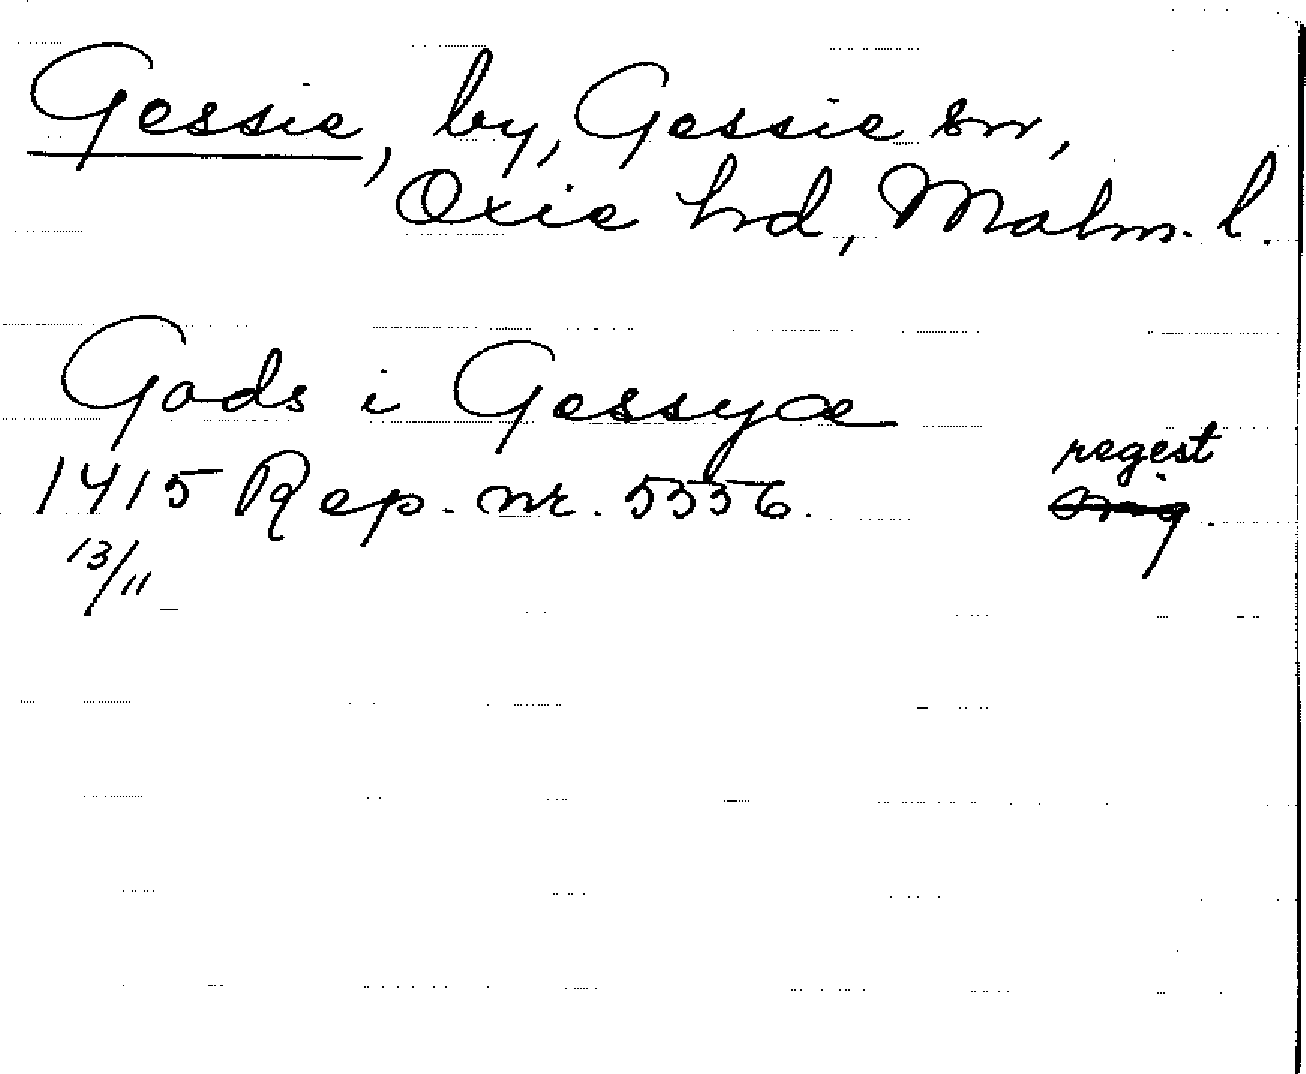 Gessie, by, Gessie sn,
Oxie hd, Malm. l.
Gods i Gessyæ
1415 Rep. nr. 5356.
regest
13/11